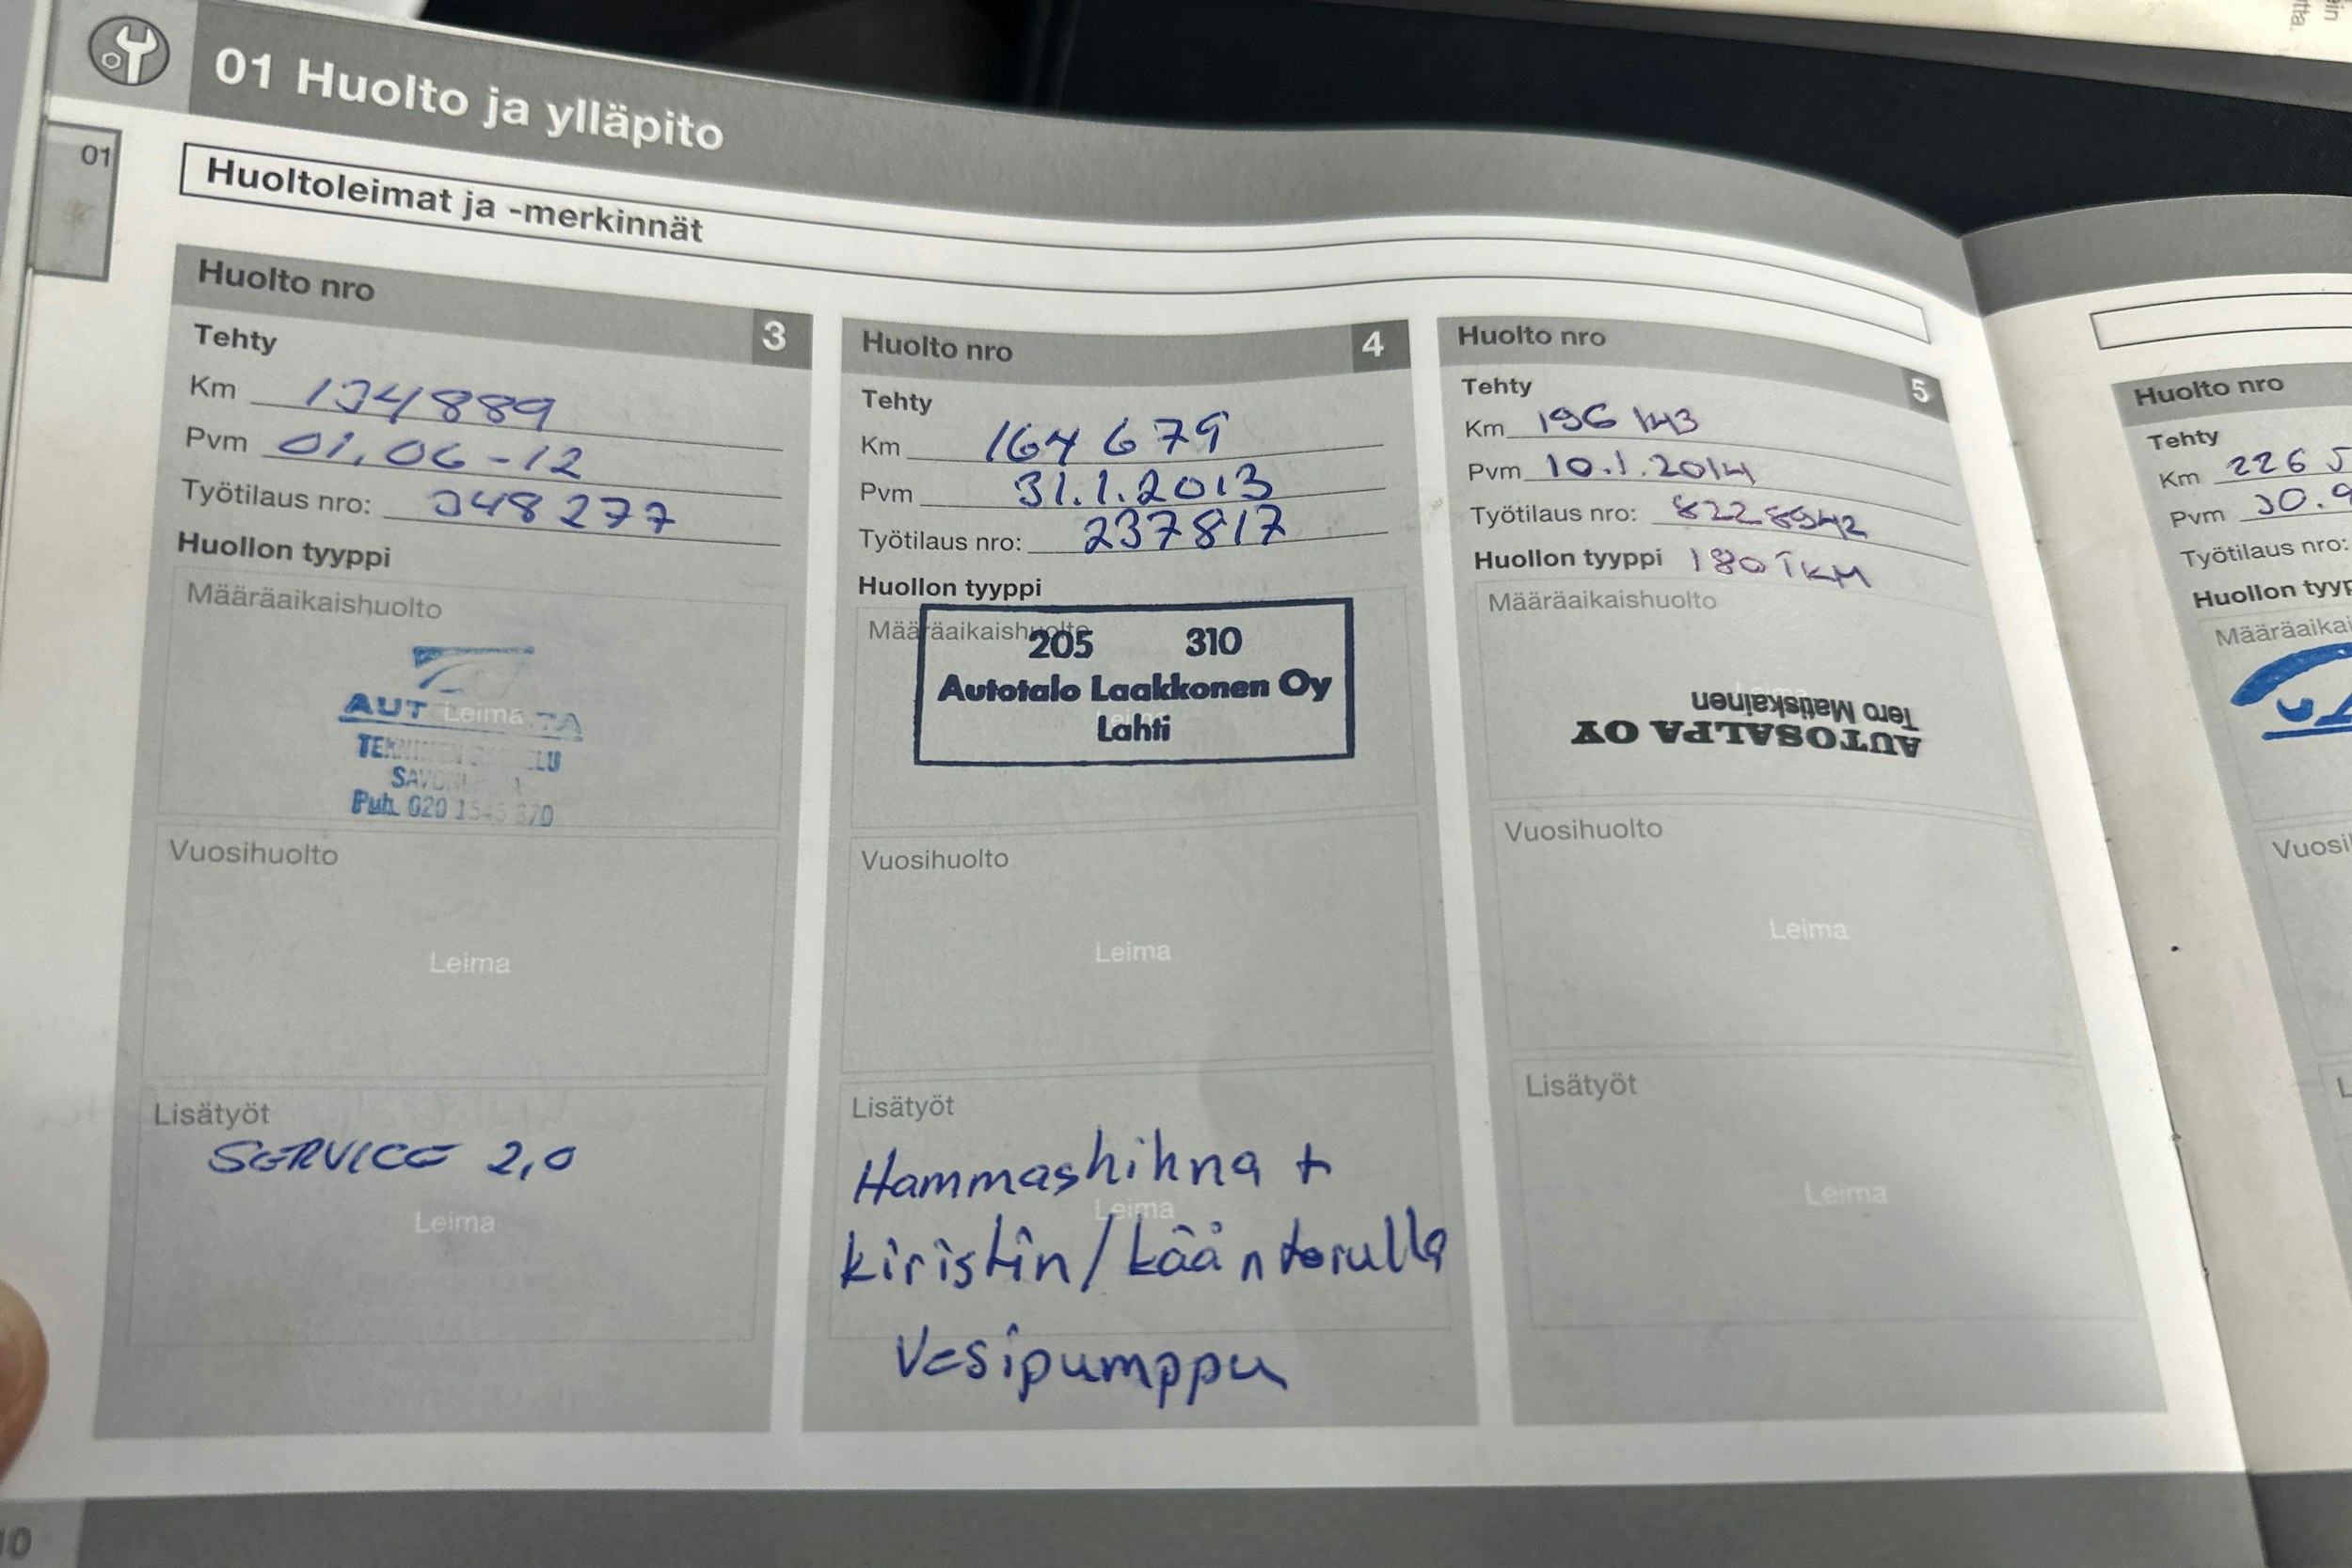 01 Huolto ja ylläpito
01
Huoltoleimat ja -merkinnät
Huolto nro 3
Tehty
Km 134889
Pvm 01.06-12
Työtilaus nro: 348277
Huollon tyyppi
Määräaikaishuolto
Leima
Puh. 020
Vuosihuolto
Leima
Lisätyöt
SERVICE 2,0
Leima
Huolto nro 4
Tehty
Km 164 679
Pvm 31.1.2013
Työtilaus nro: 237817
Huollon tyyppi
Määräaikaishuolto
205 310
Autotalo Laakkonen Oy
Lahti
Vuosihuolto
Leima
Lisätyöt
Hammashihna +
Leima
kiristin/kääntorulla
Vesipumppu
Huolto nro 5
Tehty
Km 196 143
Pvm 10.1.2014
Työtilaus nro:
Huollon tyyppi 180 TKM
Määräaikaishuolto
Leima
AUTOSALPA OY
Tero Matiskainen
Vuosihuolto
Leima
Lisätyöt
Leima
Huolto nro
Tehty
Km 226 5
Pvm 30.9
Työtilaus nro:
Huollon tyyp
Määräaikai
Vuosi
L
10